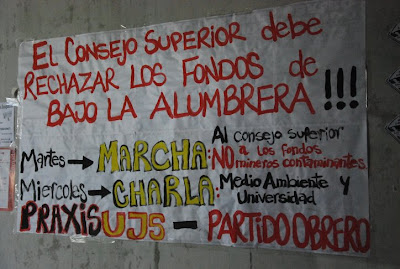 El Consejo Superior debe
RECHAZAR LOS FONDOS de
BAJO LA ALUMBRERA!!!
Martes → MARCHA: Al consejo superior
NO a los fondos
mineros contaminantes
Miercoles → CHARLA: Medio Ambiente y
Universidad
PRAXIS UJS - PARTIDO OBRERO